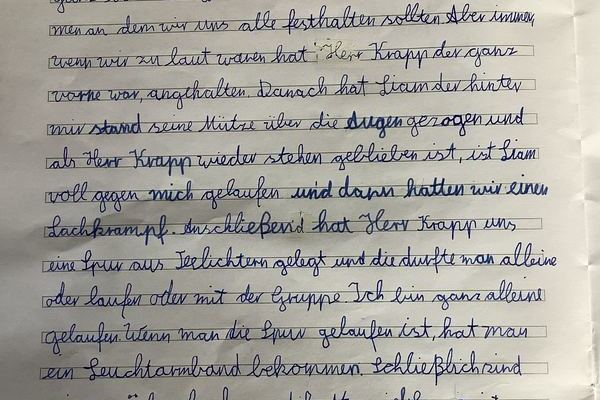 men an dem wir uns alle festhalten sollten. Aber immer,
wenn wir zu laut waren hat Herr Krapp der ganz
vorne war, angehalten. Danach hat Liam der hinter
mir stand seine Mütze über die Augen gezogen und
als Herr Krapp wieder stehen geblieben ist, ist Liam
voll gegen mich gelaufen und dann hatten wir einen
Lachkrampf. Anschließend hat Herr Krapp uns
eine Spur aus Teelichtern gelegt und die durfte man alleine
oder laufen oder mit der Gruppe. Ich bin ganz alleine
gelaufen. Wenn man die Spur gelaufen ist, hat man
ein Leuchtarmband bekommen. Schließlich sind